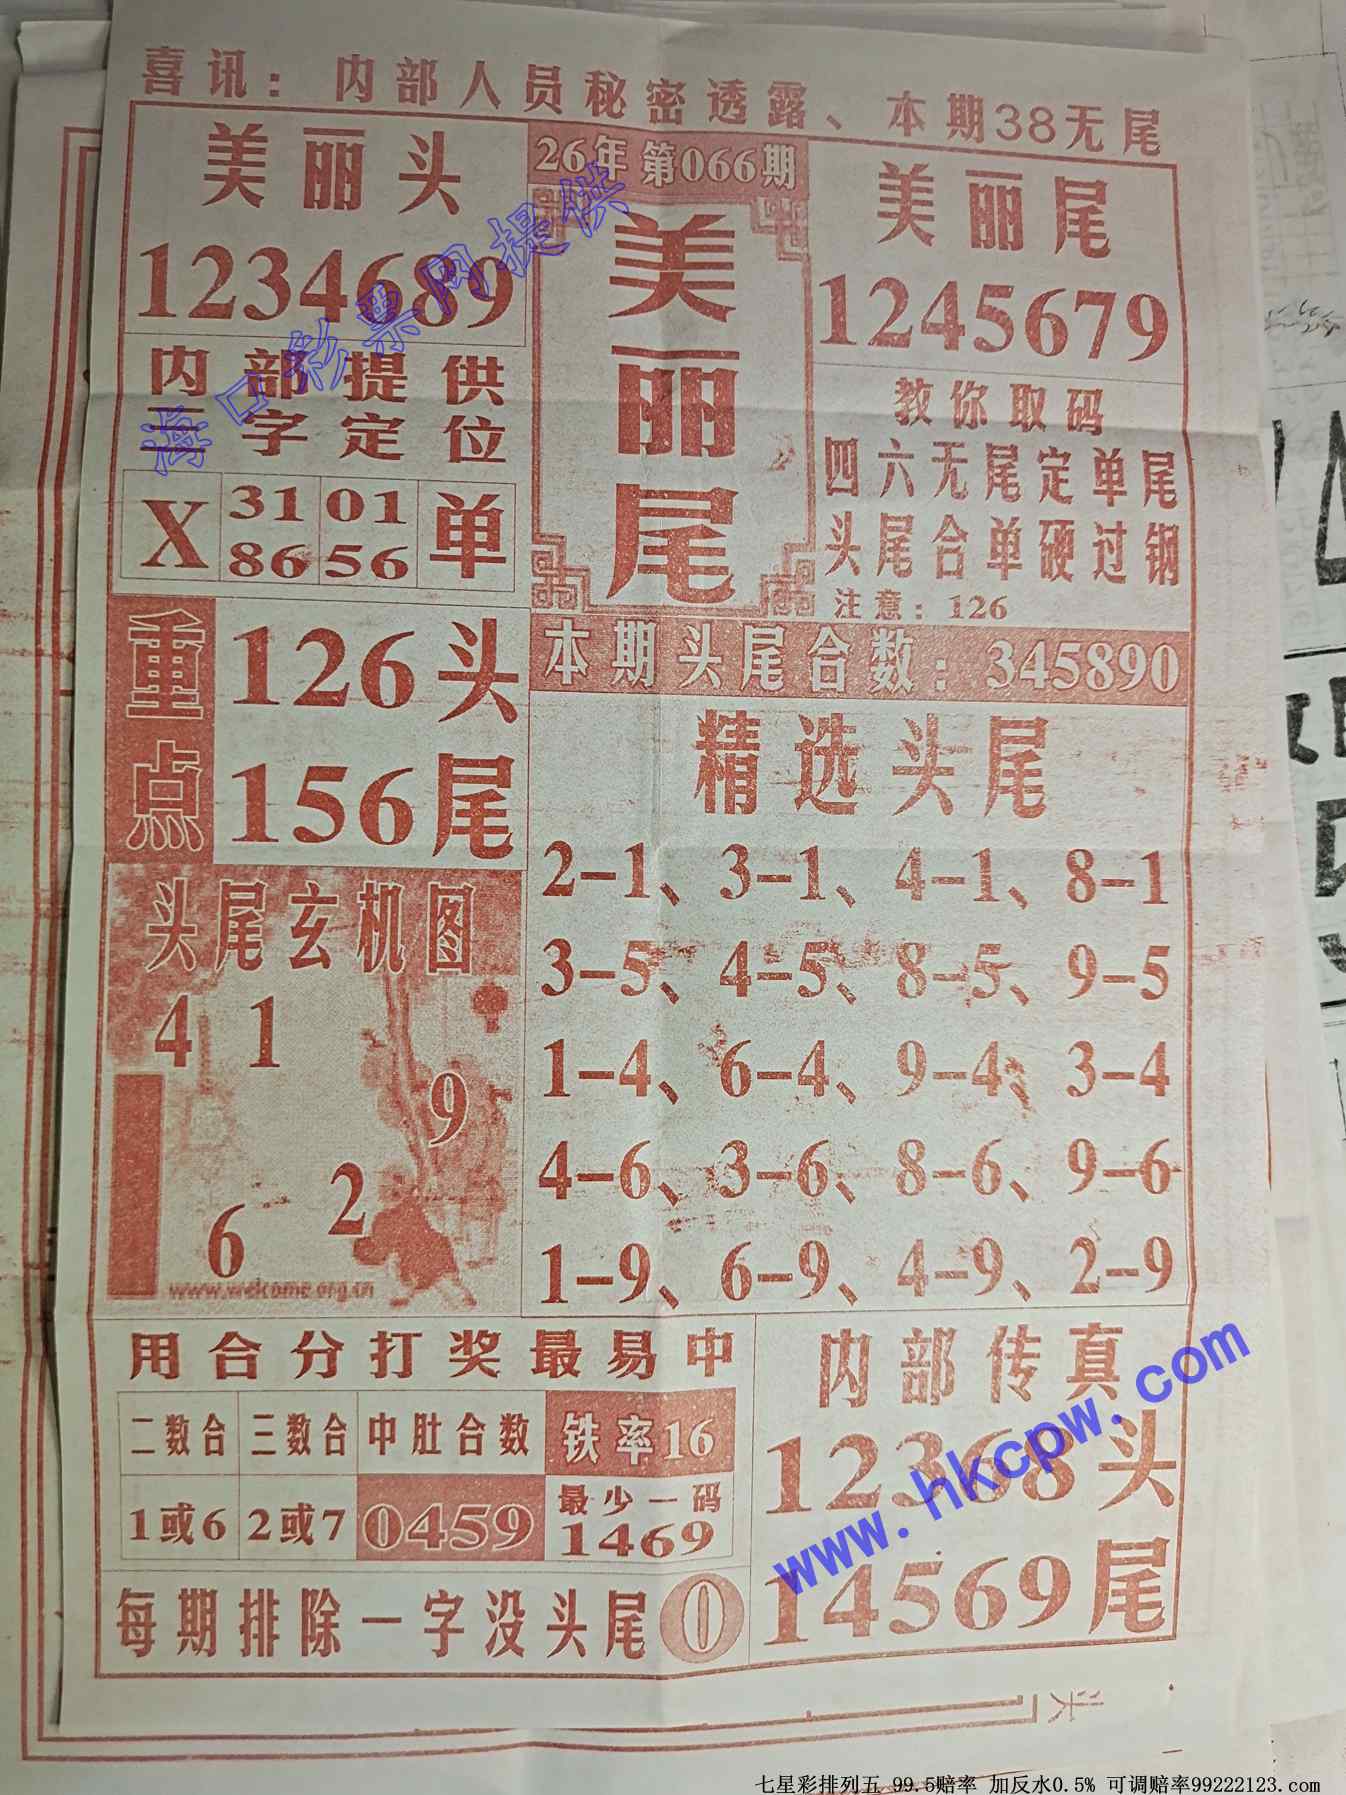 喜讯：内部人员秘密透露、本期38无尾
美丽头
1234689
26年 第066期
美丽尾
美丽尾
1245679
内部提供
二字定位
X 31 01 单
86 56
教你取码
四六无尾定单尾
头尾合单硬过钢
注意：126
重点
126头
156尾
本期头尾合数：345890
精选头尾
2-1、3-1、4-1、8-1
3-5、4-5、8-5、9-5
1-4、6-4、9-4、3-4
4-6、3-6、8-6、9-6
1-9、6-9、4-9、2-9
头尾玄机图
4 1
9
2
6
www.welcome.org.cn
用合分打奖最易中
二数合 三数合 中肚合数 铁率16
1或6 2或7 0459 最少一码
1469
每期排除一字没头尾 0
内部传真
12368头
14569尾
海口彩票网提供
www.hkcpw.com
头
七星彩排列五 99.5赔率 加反水0.5% 可调赔率99222123.com